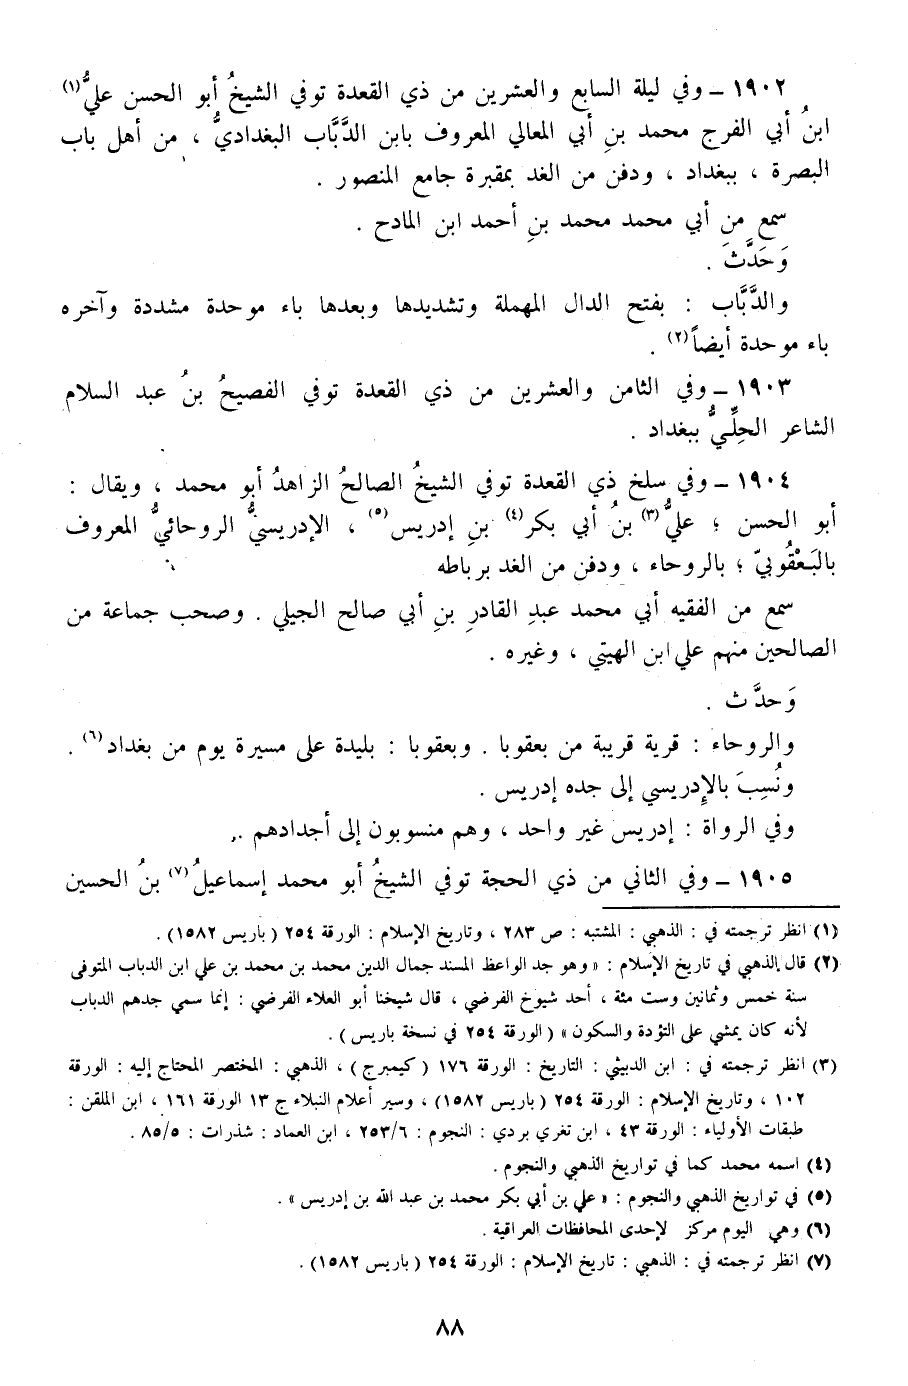 ١٩٠٢ ـ وفي ليلة السابع والعشرين من ذي القعدة توفي الشيخُ أبو الحسن عليُّ(١)
ابنُ أبي الفرج محمد بنِ أبي المعالي المعروف بابن الدَّبَّاب البغداديُّ ، من أهل باب
البصرة ، ببغداد ، ودفن من الغد بمقبرة جامع المنصور .
سمع من أبي محمد محمد بنِ أحمد ابن المادح .
وَحَدَّثَ .
والدَّبَّاب : بفتح الدال المهملة وتشديدها وبعدها باء موحدة مشددة وآخره
باء موحدة أيضاً(٢) .
١٩٠٣ ـ وفي الثامن والعشرين من ذي القعدة توفي الفصيحُ بنُ عبد السلام
الشاعر الحِلِّيُّ ببغداد .
١٩٠٤ ـ وفي سلخ ذي القعدة توفي الشيخُ الصالحُ الزاهدُ أبو محمد ، ويقال :
أبو الحسن ؛ عليُّ(٣) بنُ أبي بكر(٤) بنِ إدريس(٥) ، الإدريسيُّ الروحائيُّ المعروف
بالبَعْقُوبيّ ؛ بالروحاء ، ودفن من الغد برباطه
سمع من الفقيه أبي محمد عبدِ القادرِ بنِ أبي صالح الجيلي . وصحب جماعة من
الصالحين منهم علي ابن الهيتي ، وغيره .
وَحدَّث .
والروحاء : قرية قريبة من بعقوبا . وبعقوبا : بليدة على مسيرة يوم من بغداد(٦) .
ونُسِبَ بالإدريسي إلى جده إدريس .
وفي الرواة : إدريس غير واحد ، وهم منسوبون إلى أجدادهم .
١٩٠٥ ـ وفي الثاني من ذي الحجة توفي الشيخُ أبو محمد إسماعيلُ(٧) بنُ الحسين
(١) انظر ترجمته في : الذهبي : المشتبه : ص ٢٨٣ ، وتاريخ الإسلام : الورقة ٢٥٤ ( باريس ١٥٨٢) .
(٢) قال الذهبي في تاريخ الإسلام : « وهو جد الواعظ المسند جمال الدين محمد بن محمد بن علي ابن الدباب المتوفى
سنة خمس وثمانين وست مئة ، أحد شيوخ الفرضي ، قال شيخنا أبو العلاء الفرضي : إنما سمي جدهم الدباب
لأنه كان يمشي على التؤدة والسكون » ( الورقة ٢٥٤ في نسخة باريس ) .
(٣) انظر ترجمته في : ابن الدبيثي : التاريخ : الورقة ١٧٦ ( كيمبرج ) ، الذهبي : المختصر المحتاج إليه : الورقة
١٠٢ ، وتاريخ الإسلام : الورقة ٢٥٤ ( باريس ١٥٨٢) ، وسير أعلام النبلاء ج ١٣ الورقة ١٦١ ، ابن الملقن :
طبقات الأولياء : الورقة ٤٣ ، ابن تغري بردي : النجوم : ٢٥٣/٦ ، ابن العماد : شذرات : ٨٥/٥ .
(٤) اسمه محمد كما في تواريخ الذهبي والنجوم .
(٥) في تواريخ الذهبي والنجوم : « علي بن أبي بكر محمد بن عبد الله بن إدريس » .
(٦) وهي اليوم مركز لإحدى المحافظات العراقية .
(٧) انظر ترجمته في : الذهبي : تاريخ الإسلام : الورقة ٢٥٤ ( باريس ١٥٨٢) .
٨٨